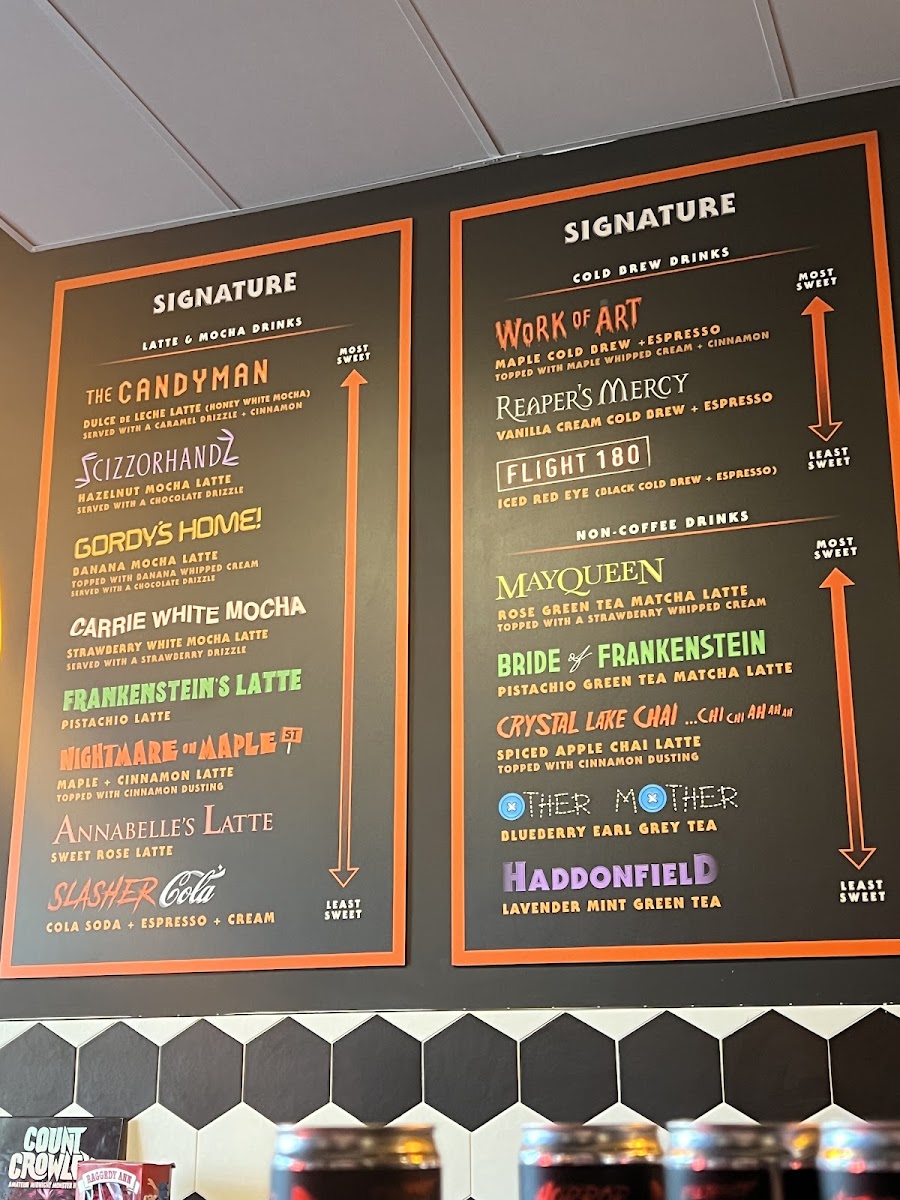 SIGNATURE
LATTE & MOCHA DRINKS
MOST
SWEET
THE CANDYMAN
DULCE DE LECHE LATTE (HONEY WHITE MOCHA)
SERVED WITH A CARAMEL DRIZZLE + CINNAMON
SCIZZORHANDZ
HAZELNUT MOCHA LATTE
SERVED WITH A CHOCOLATE DRIZZLE
GORDY'S HOME!
BANANA MOCHA LATTE
TOPPED WITH BANANA WHIPPED CREAM
SERVED WITH A CHOCOLATE DRIZZLE
CARRIE WHITE MOCHA
STRAWBERRY WHITE MOCHA LATTE
SERVED WITH A STRAWBERRY DRIZZLE
FRANKENSTEIN'S LATTE
PISTACHIO LATTE
NIGHTMARE ON MAPLE ST
MAPLE + CINNAMON LATTE
TOPPED WITH CINNAMON DUSTING
ANNABELLE'S LATTE
SWEET ROSE LATTE
SLASHER Cola
COLA SODA + ESPRESSO + CREAM
LEAST
SWEET
SIGNATURE
COLD BREW DRINKS
MOST
SWEET
WORK OF ART
MAPLE COLD BREW +ESPRESSO
TOPPED WITH MAPLE WHIPPED CREAM + CINNAMON
REAPER'S MERCY
VANILLA CREAM COLD BREW + ESPRESSO
FLIGHT 180
ICED RED EYE (BLACK COLD BREW + ESPRESSO)
LEAST
SWEET
NON-COFFEE DRINKS
MOST
SWEET
MAYQUEEN
ROSE GREEN TEA MATCHA LATTE
TOPPED WITH A STRAWBERRY WHIPPED CREAM
BRIDE of FRANKENSTEIN
PISTACHIO GREEN TEA MATCHA LATTE
CRYSTAL LAKE CHAI ...CHI CHI AH AH AH
SPICED APPLE CHAI LATTE
TOPPED WITH CINNAMON DUSTING
OTHER MOTHER
BLUEBERRY EARL GREY TEA
HADDONFIELD
LAVENDER MINT GREEN TEA
LEAST
SWEET
COUNT
CROWLEY
AMATEUR MIDNIGHT MONSTER
RAGGEDY ANN